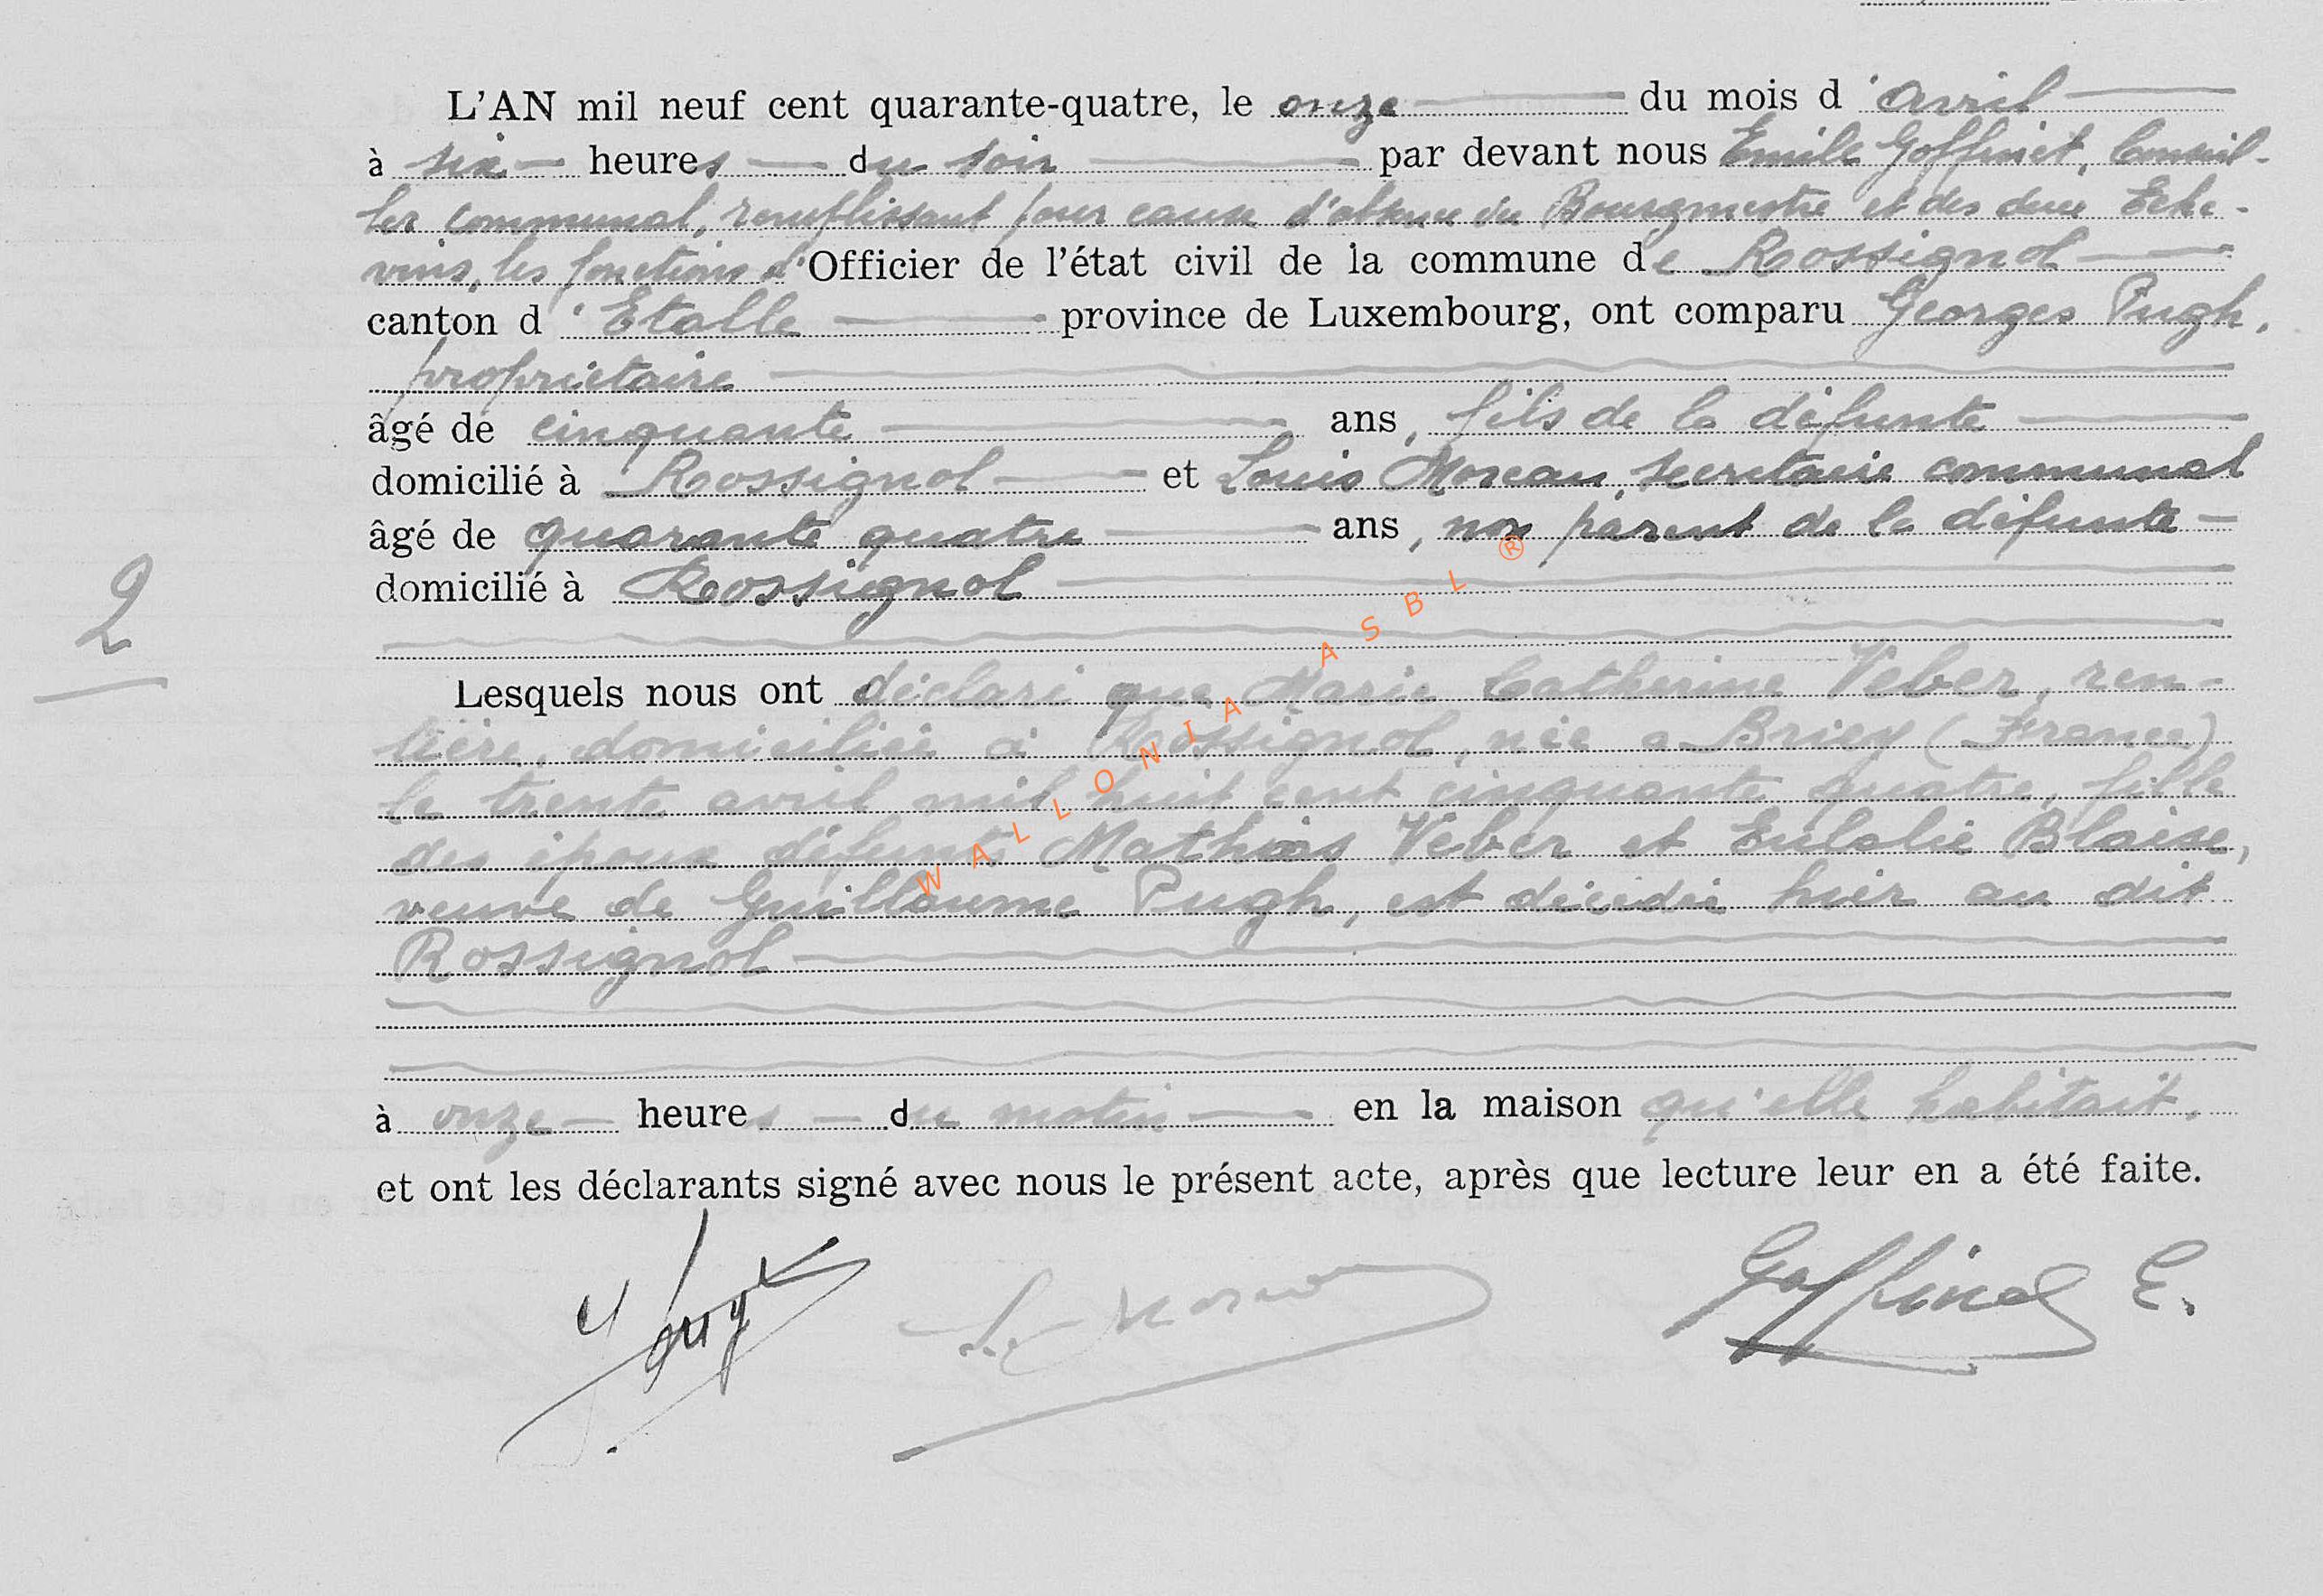 L'AN mil neuf cent quarante-quatre, le onze du mois d'avril
à six heures du soir par devant nous Emile Goffinet, Conseil-
ler communal, remplissant pour cause d'absence du Bourgmestre et des deux Eche-
vins, les fonctions d'Officier de l'état civil de la commune de Rossignol
canton d'Etalle province de Luxembourg, ont comparu Georges Pugh,
propriétaire
âgé de cinquante ans, fils de la défunte
domicilié à Rossignol et Louis Moreau, secrétaire communal
âgé de quarante quatre ans, non parent de la défunte
domicilié à Rossignol
2
Lesquels nous ont déclaré que Marie Catherine Veber, ren-
tière, domiciliée à Rossignol, née a Briey (France)
le trente avril mil huit cent cinquante quatre, fille
des époux défunts Mathias Veber et Eulalie Blaise,
veuve de Guillaume Pugh, est décédée hier au dit
Rossignol
à onze heures du matin en la maison qu'elle habitait.
et ont les déclarants signé avec nous le présent acte, après que lecture leur en a été faite.
L. Moreau Goffinet E.
WALLONIA ASBL ®